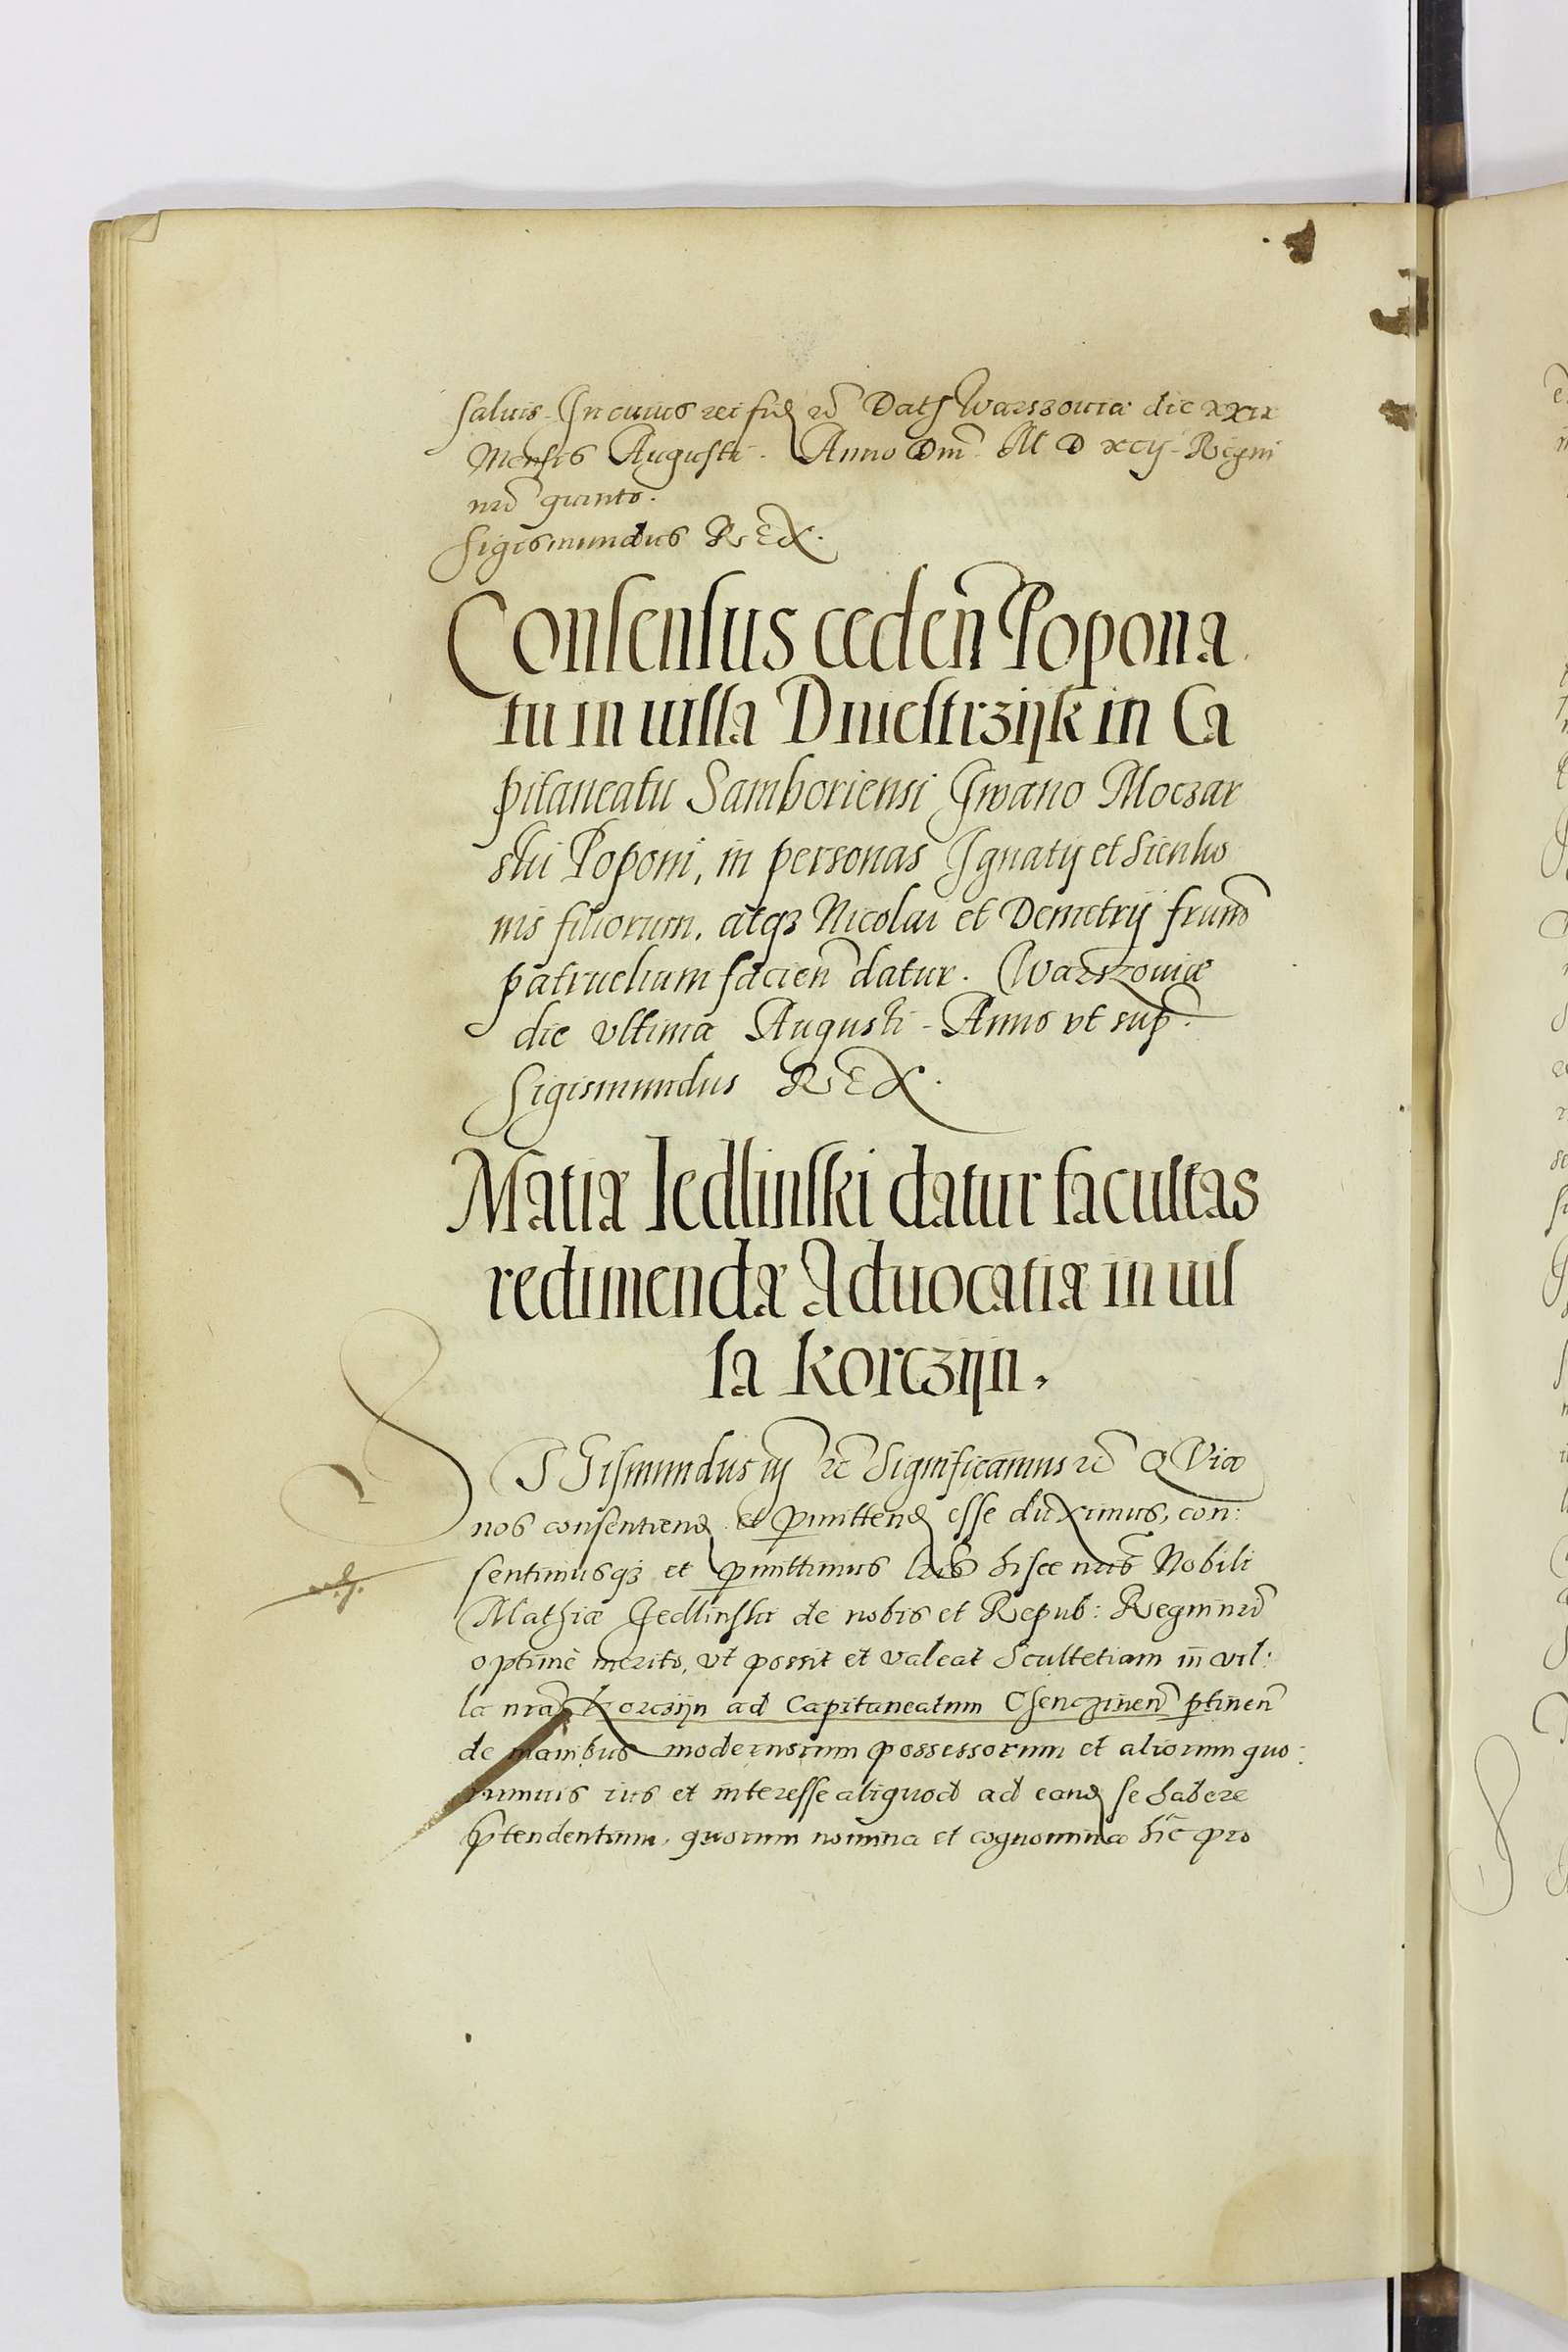 saluis. In cuius rei fid rc Dats Warszouiæ die xxix
Mensis Augusti. Anno Dm̃ M D xcij. Regni
nrĩ quinto.
Sigismundus REX.
Consensus ceden̄ Popona
tu in uilla Dniestrzijk in Ca
pitaneatu Samboriensi Iwano Moczar
ski Poponi, in personas Ignatij et Sienko
nis filiorum, atqз Nicolai et Demetrij frum̃
patruelium facien̄ datur. Warszouiæ
die vltima Augusti - Anno vt sup.
Sigismundus REX.
Matiæ Iedlinski datur facultas
redimendæ Aduocatiæ in uil
la Korczijn.
SIGismundus iij rc Significamus rc QVia
nos consentiend et pmittend esse duximus, con:
sentimusqз et pmittimus lris hisce nris Nobili
Mathiæ Iedlinski de nobis et Repub: Regni nrĩ
optimè merito, vt possit et valeat Scultetiam in vil:
la nra Korczijn ad Capitaneatum Chenczinen̄ ptinen̄
de manibus modernorum possessorum et aliorum quo:
rumuis ius et interesse aliquod ad eand se habere
ptendentium, quorum nomina et cognomina hic pro